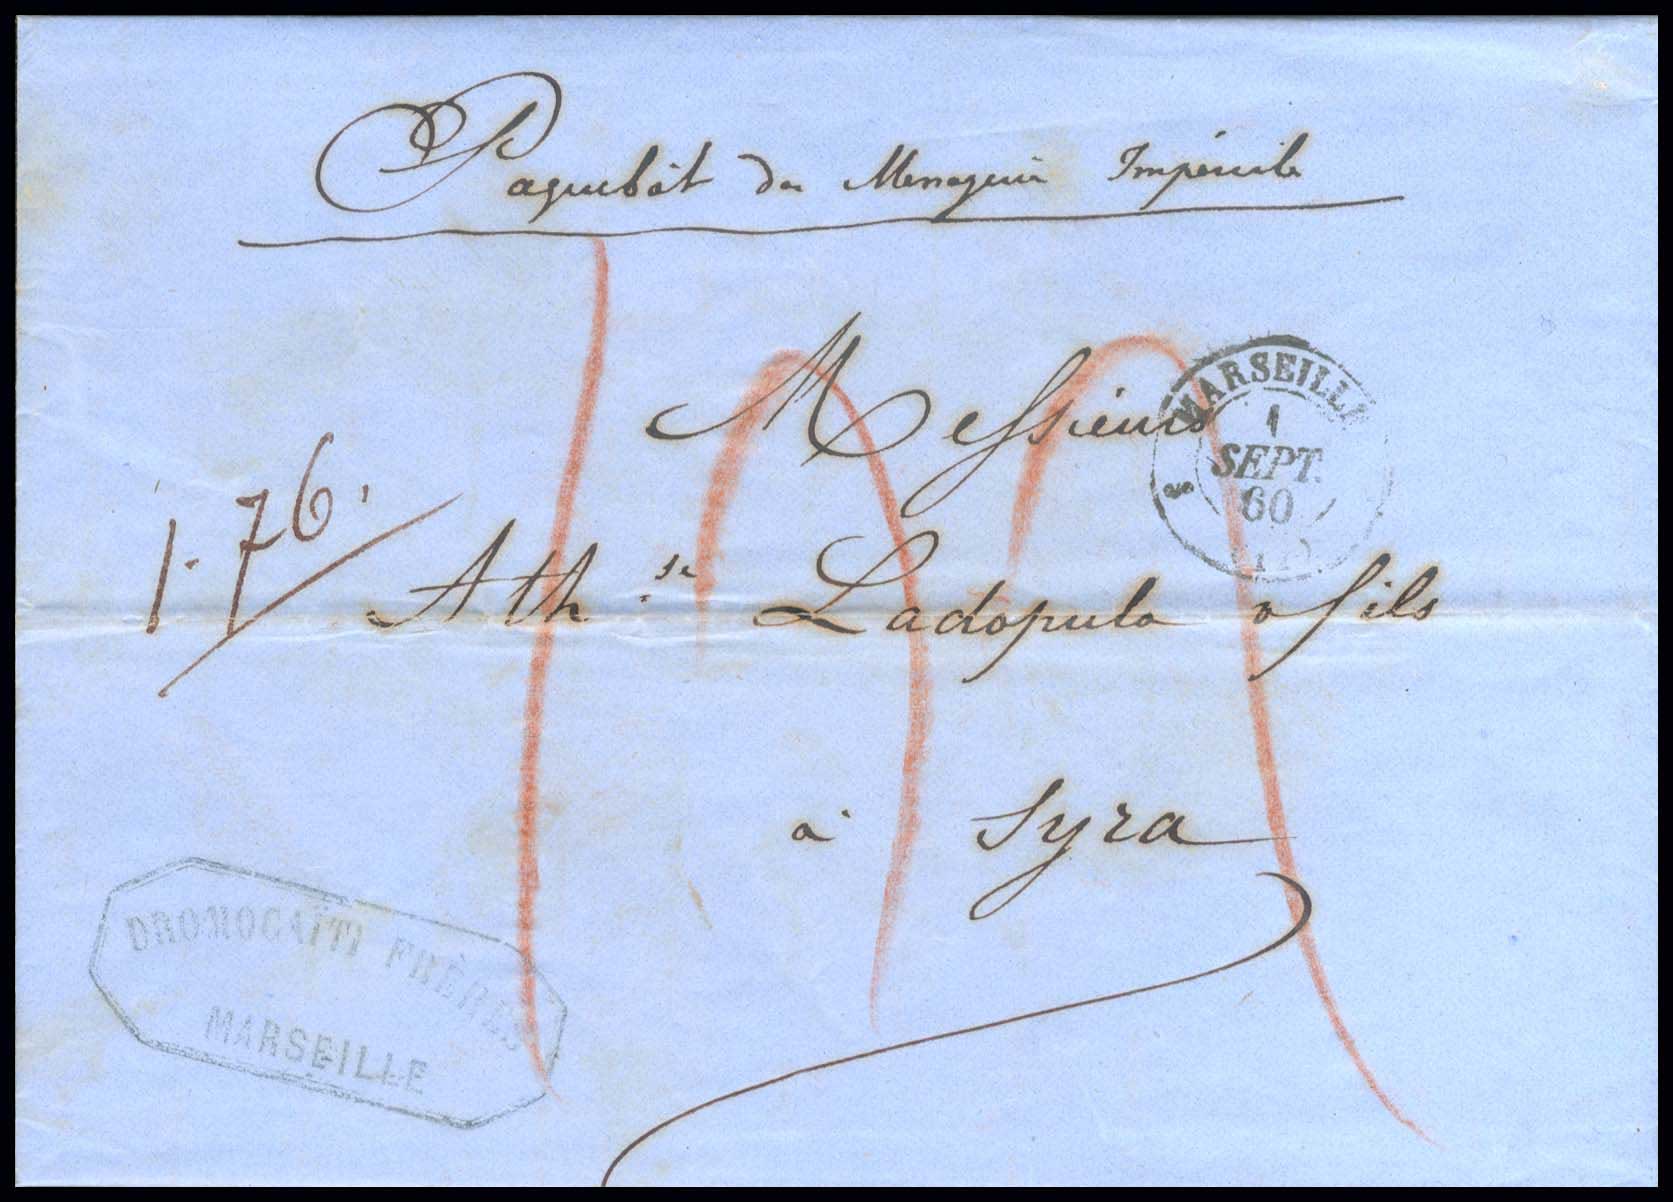 Paquebôt des Messageries Impériales
Messieurs
MARSEILLE
1
SEPT.
60
1.76.
Ath.se Ladopulo & fils
à Syra
DROMOCAÏTI FRÈRES
MARSEILLE